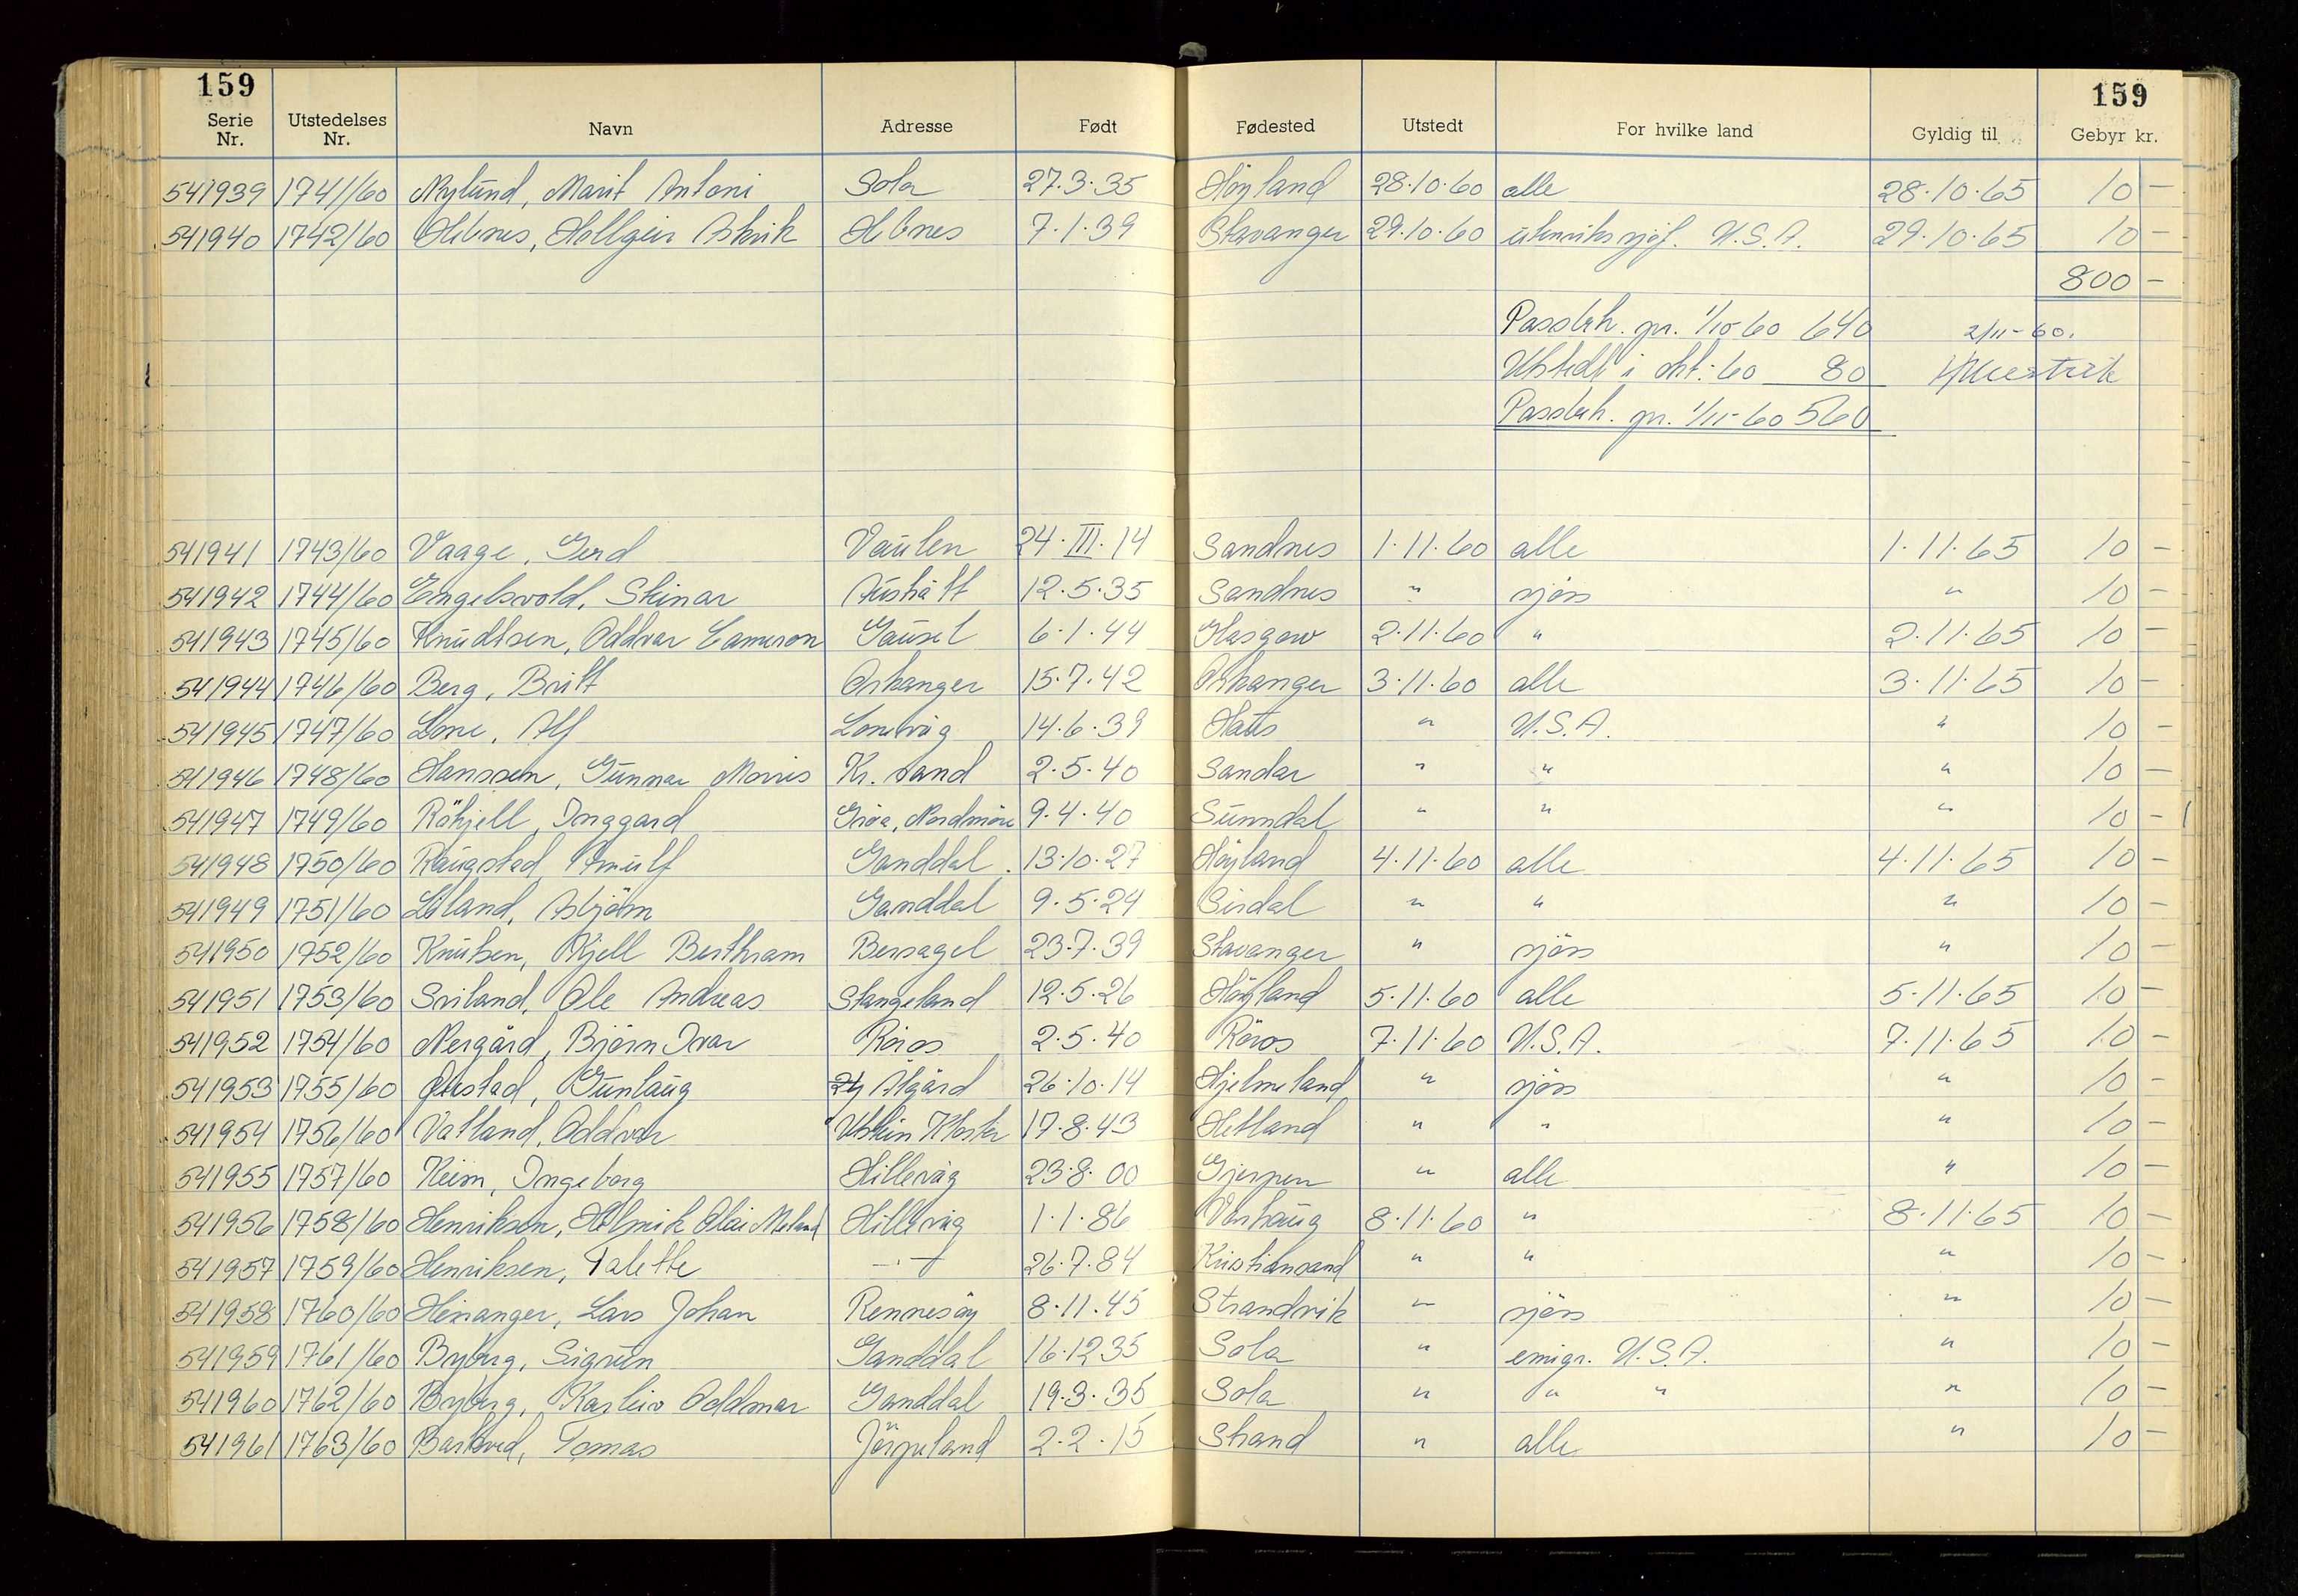 159 159
Serie Nr. Utstedelses Nr. Navn Adresse Født Fødested Utstedt For hvilke land Gyldig til Gebyr kr.
541939 1741/60 Nylund, Marit Antoni Sola 27.3.35 Höyland 28.10.60 alle 28.10.65 10 -
541940 1742/60 Hebnes, Hallgeir Hebnes 7.1.39 Stavanger 29.10.60 utenriks sjöf. U.S.A. 29.10.65 10 -
800 -
Passbeh. pr. 1/10-60 640 2/11-60.
Utstedt i okt.-60 80
Passbeh. pr. 1/11-60 560
541941 1743/60 Vaage, Gerd Vaulen 24.III.14 Sandnes 1.11.60 alle 1.11.65 10 -
541942 1744/60 Engelsvold, Steinar Austrått 12.5.35 Sandnes " sjöss " 10 -
541943 1745/60 Knudtsen, Oddvar Cameron Gausel 6.1.44 Glasgow 2.11.60 " 2.11.65 10 -
541944 1746/60 Berg, Britt Orkanger 15.7.42 Orkanger 3.11.60 alle 3.11.65 10 -
541945 1747/60 Lone, Alf Lonevåg 14.6.39 Haus " U.S.A. " 10 -
541946 1748/60 Hanssen, Gunnar Morris Kr.sand 2.5.40 Sandar " " " 10 -
541947 1749/60 Rökjell, Inggard Gröa, Nordmöre 9.4.40 Sunndal " " " 10 -
541948 1750/60 Raugstad, Arnulf Ganddal 13.10.27 Höyland 4.11.60 alle 4.11.65 10 -
541949 1751/60 Låland, Asbjörn Ganddal 9.5.24 Sirdal " " " 10 -
541950 1752/60 Knutsen, Kjell Berthram Bersagel 23.7.39 Stavanger " sjöss " 10 -
541951 1753/60 Sviland, Ole Andreas Stangeland 12.5.26 Höyland 5.11.60 alle 5.11.65 10 -
541952 1754/60 Nergård, Björn Ivar Röros 2.5.40 Röros 7.11.60 U.S.A. 7.11.65 10 -
541953 1755/60 Gunlaug Ålgård 26.10.14 Hjelmeland " sjöss " 10 -
541954 1756/60 Vatland, Oddvar Utstein Kloster 17.8.43 Hetland " " " 10 -
541955 1757/60 Keim, Ingeborg Hillevåg 23.8.00 Gjerpen " alle " 10 -
541956 1758/60 Henriksen, Olai Meland Hillevåg 1.1.86 Varhaug 8.11.60 " 8.11.65 10 -
541957 1759/60 Henriksen, Talette -"- 26.7.84 Kristiansand " " " 10 -
541958 1760/60 Hisanger, Lars Johan Rennesöy 8.11.45 Strandvik " sjöss " 10 -
541959 1761/60 Byberg, Sigrun Ganddal 16.12.35 Sola " emigr. U.S.A. " 10 -
541960 1762/60 Byberg, Karleiv Oddmar Ganddal 19.3.35 Sola " " " " 10 -
541961 1763/60 Barkved, Tomas Jörpeland 2.2.15 Strand " alle " 10 -